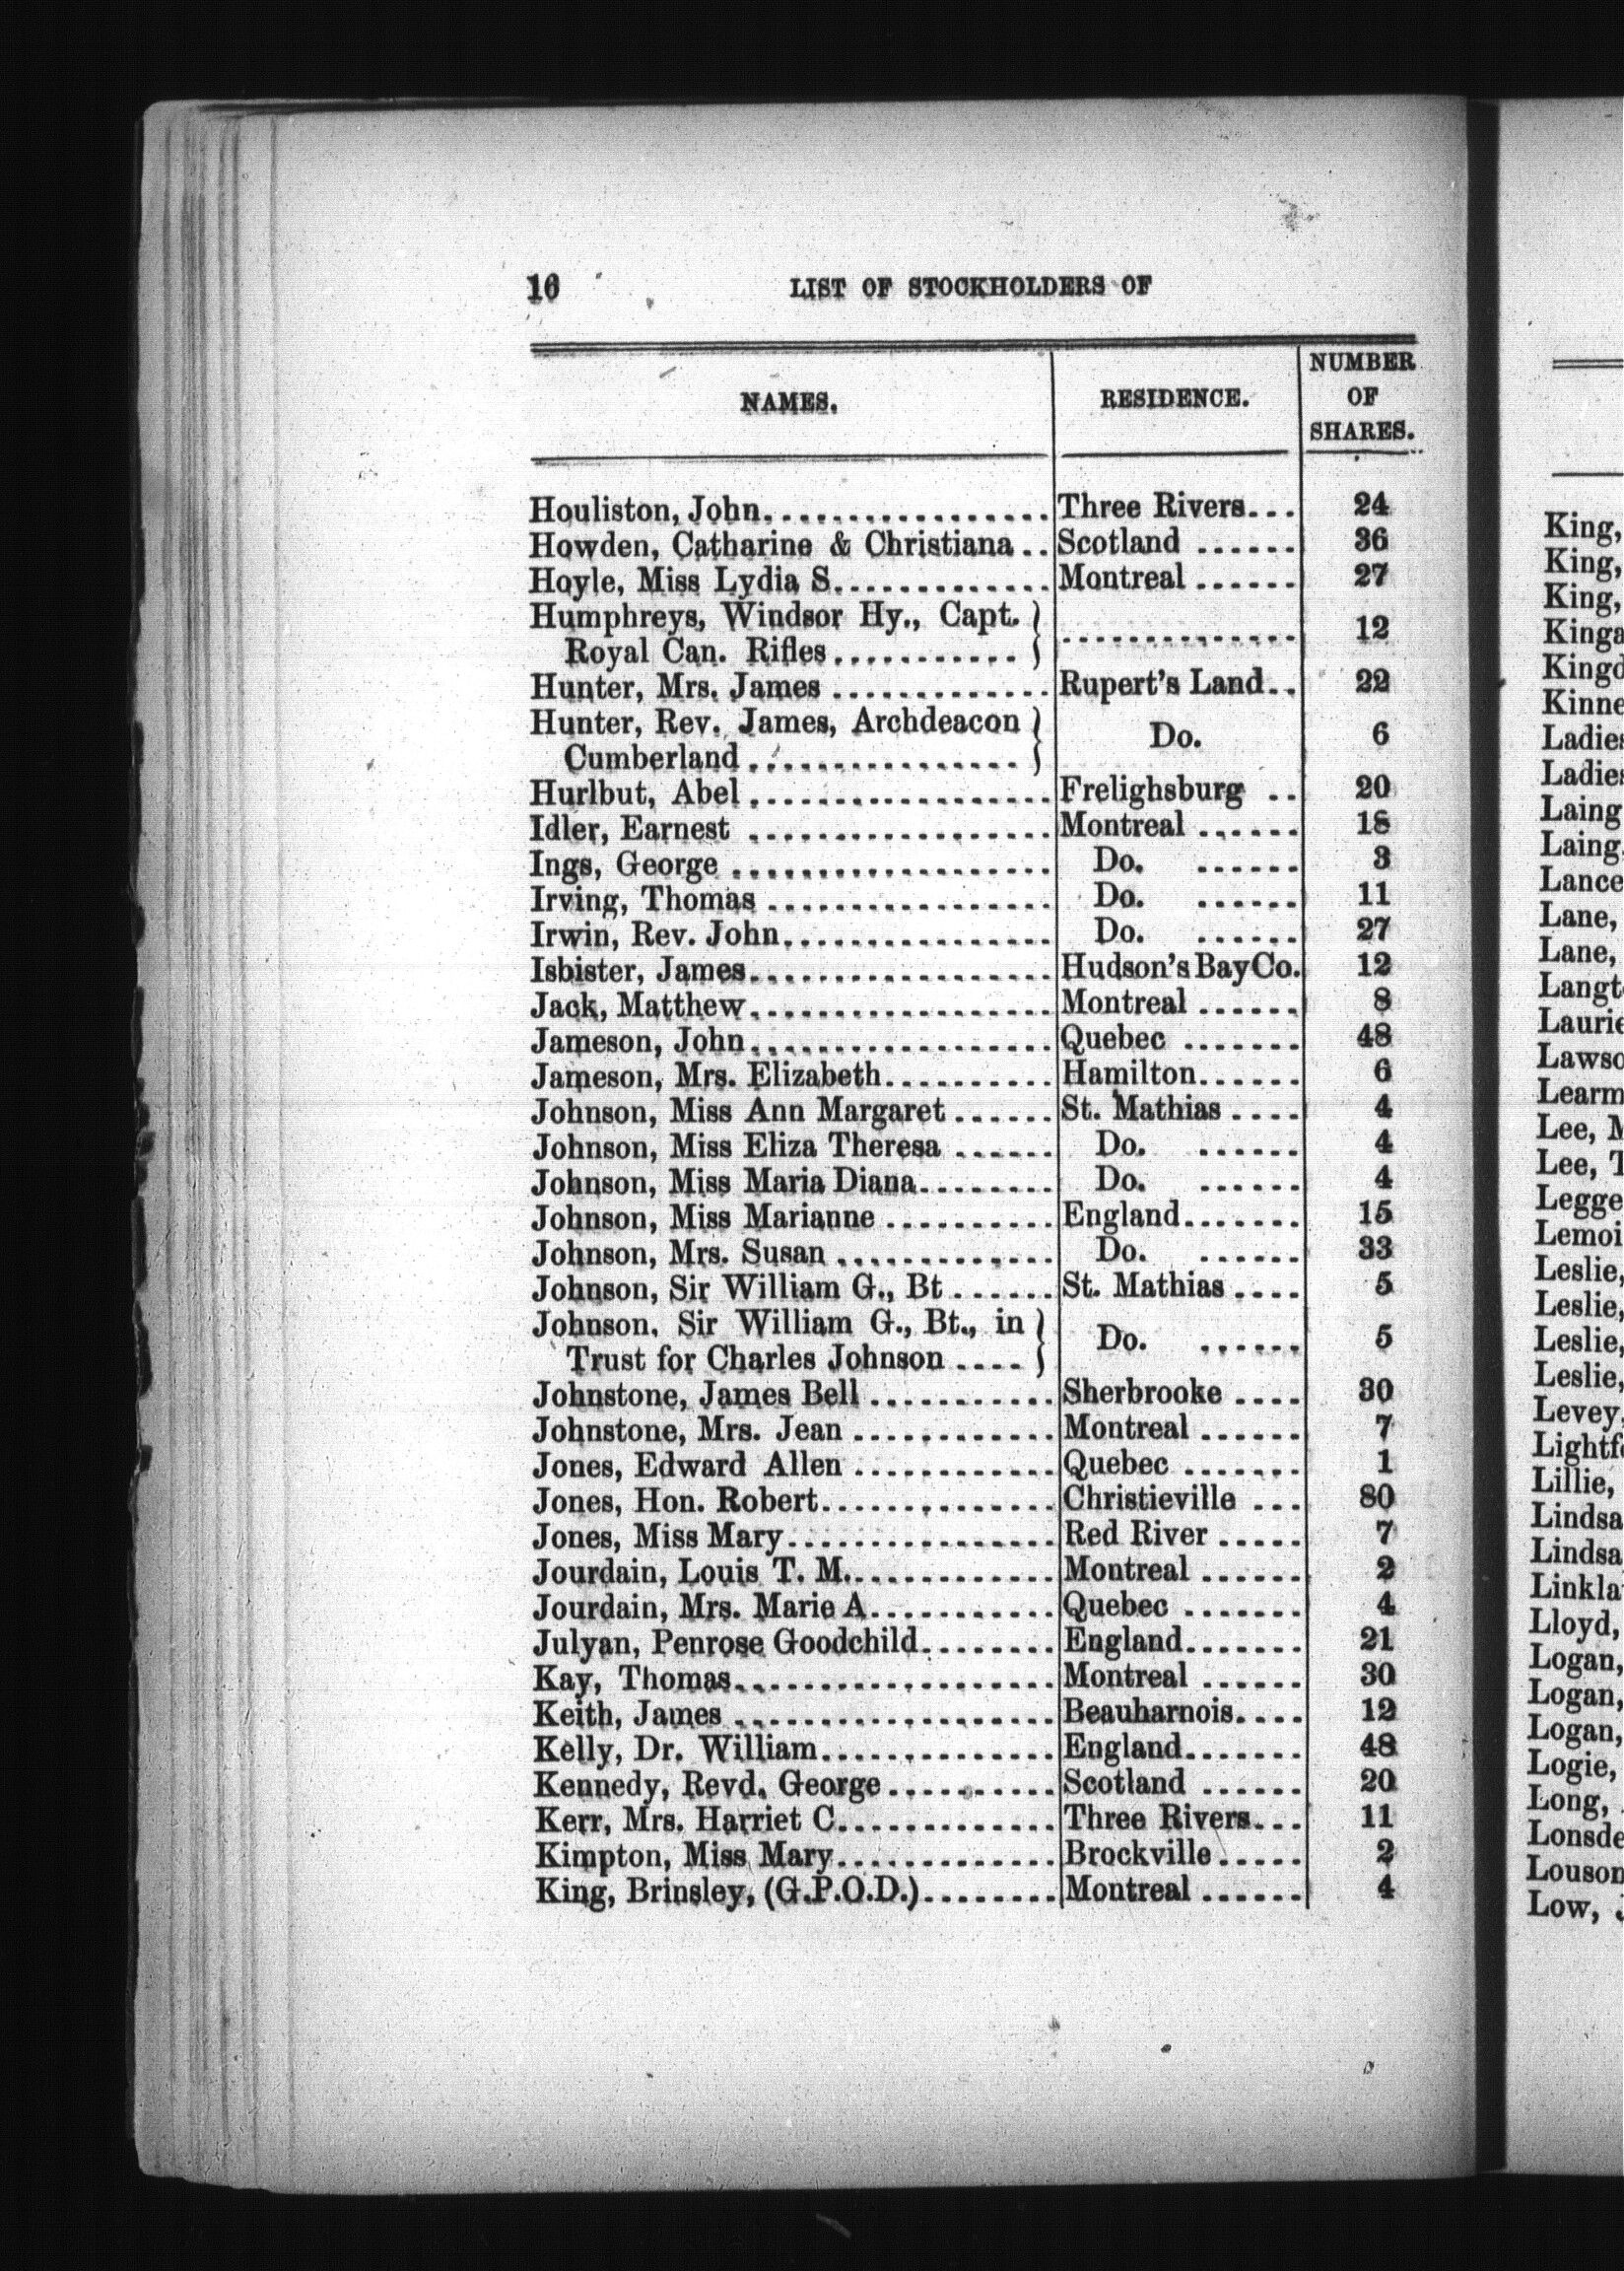 16 LIST OF STOCKHOLDERS OF
NAMES. RESIDENCE. NUMBER OF SHARES.
Houliston, John................. Three Rivers... 24
Howden, Catharine & Christiana.. Scotland ...... 36
Hoyle, Miss Lydia S............. Montreal ...... 27
Humphreys, Windsor Hy., Capt. }
Royal Can. Rifles........... } .............. 12
Hunter, Mrs. James ............. Rupert's Land.. 22
Hunter, Rev. James, Archdeacon }
Cumberland ................ } Do. 6
Hurlbut, Abel .................. Frelighsburg .. 20
Idler, Earnest .................. Montreal ...... 18
Ings, George ................... Do. ...... 3
Irving, Thomas ................. Do. ...... 11
Irwin, Rev. John................ Do. ...... 27
Isbister, James.................. Hudson's Bay Co. 12
Jack, Matthew.................. Montreal ...... 8
Jameson, John.................. Quebec ....... 48
Jameson, Mrs. Elizabeth.......... Hamilton...... 6
Johnson, Miss Ann Margaret ...... St. Mathias .... 4
Johnson, Miss Eliza Theresa ...... Do. ...... 4
Johnson, Miss Maria Diana........ Do. ...... 4
Johnson, Miss Marianne .......... England....... 15
Johnson, Mrs. Susan ............. Do. ...... 33
Johnson, Sir William G., Bt ...... St. Mathias .... 5
Johnson, Sir William G., Bt., in }
Trust for Charles Johnson .... } Do. ...... 5
Johnstone, James Bell ........... Sherbrooke .... 30
Johnstone, Mrs. Jean ............ Montreal ...... 7
Jones, Edward Allen ............ Quebec ....... 1
Jones, Hon. Robert.............. Christieville ... 80
Jones, Miss Mary................ Red River ..... 7
Jourdain, Louis T. M............. Montreal ...... 2
Jourdain, Mrs. Marie A........... Quebec ....... 4
Julyan, Penrose Goodchild........ England....... 21
Kay, Thomas................... Montreal ...... 30
Keith, James ................... Beauharnois.... 12
Kelly, Dr. William.............. England....... 48
Kennedy, Revd. George .......... Scotland ...... 20
Kerr, Mrs. Harriet C............. Three Rivers... 11
Kimpton, Miss Mary............. Brockville ..... 2
King, Brinsley, (G.P.O.D.)........ Montreal ...... 4
King,
King,
King,
Ladies
Ladies
Laing
Laing
Lane,
Lane,
Lee,
Lee,
Leslie,
Leslie,
Leslie,
Leslie,
Levey,
Lillie,
Lloyd,
Logan,
Logan,
Logan,
Logie,
Long,
Low,